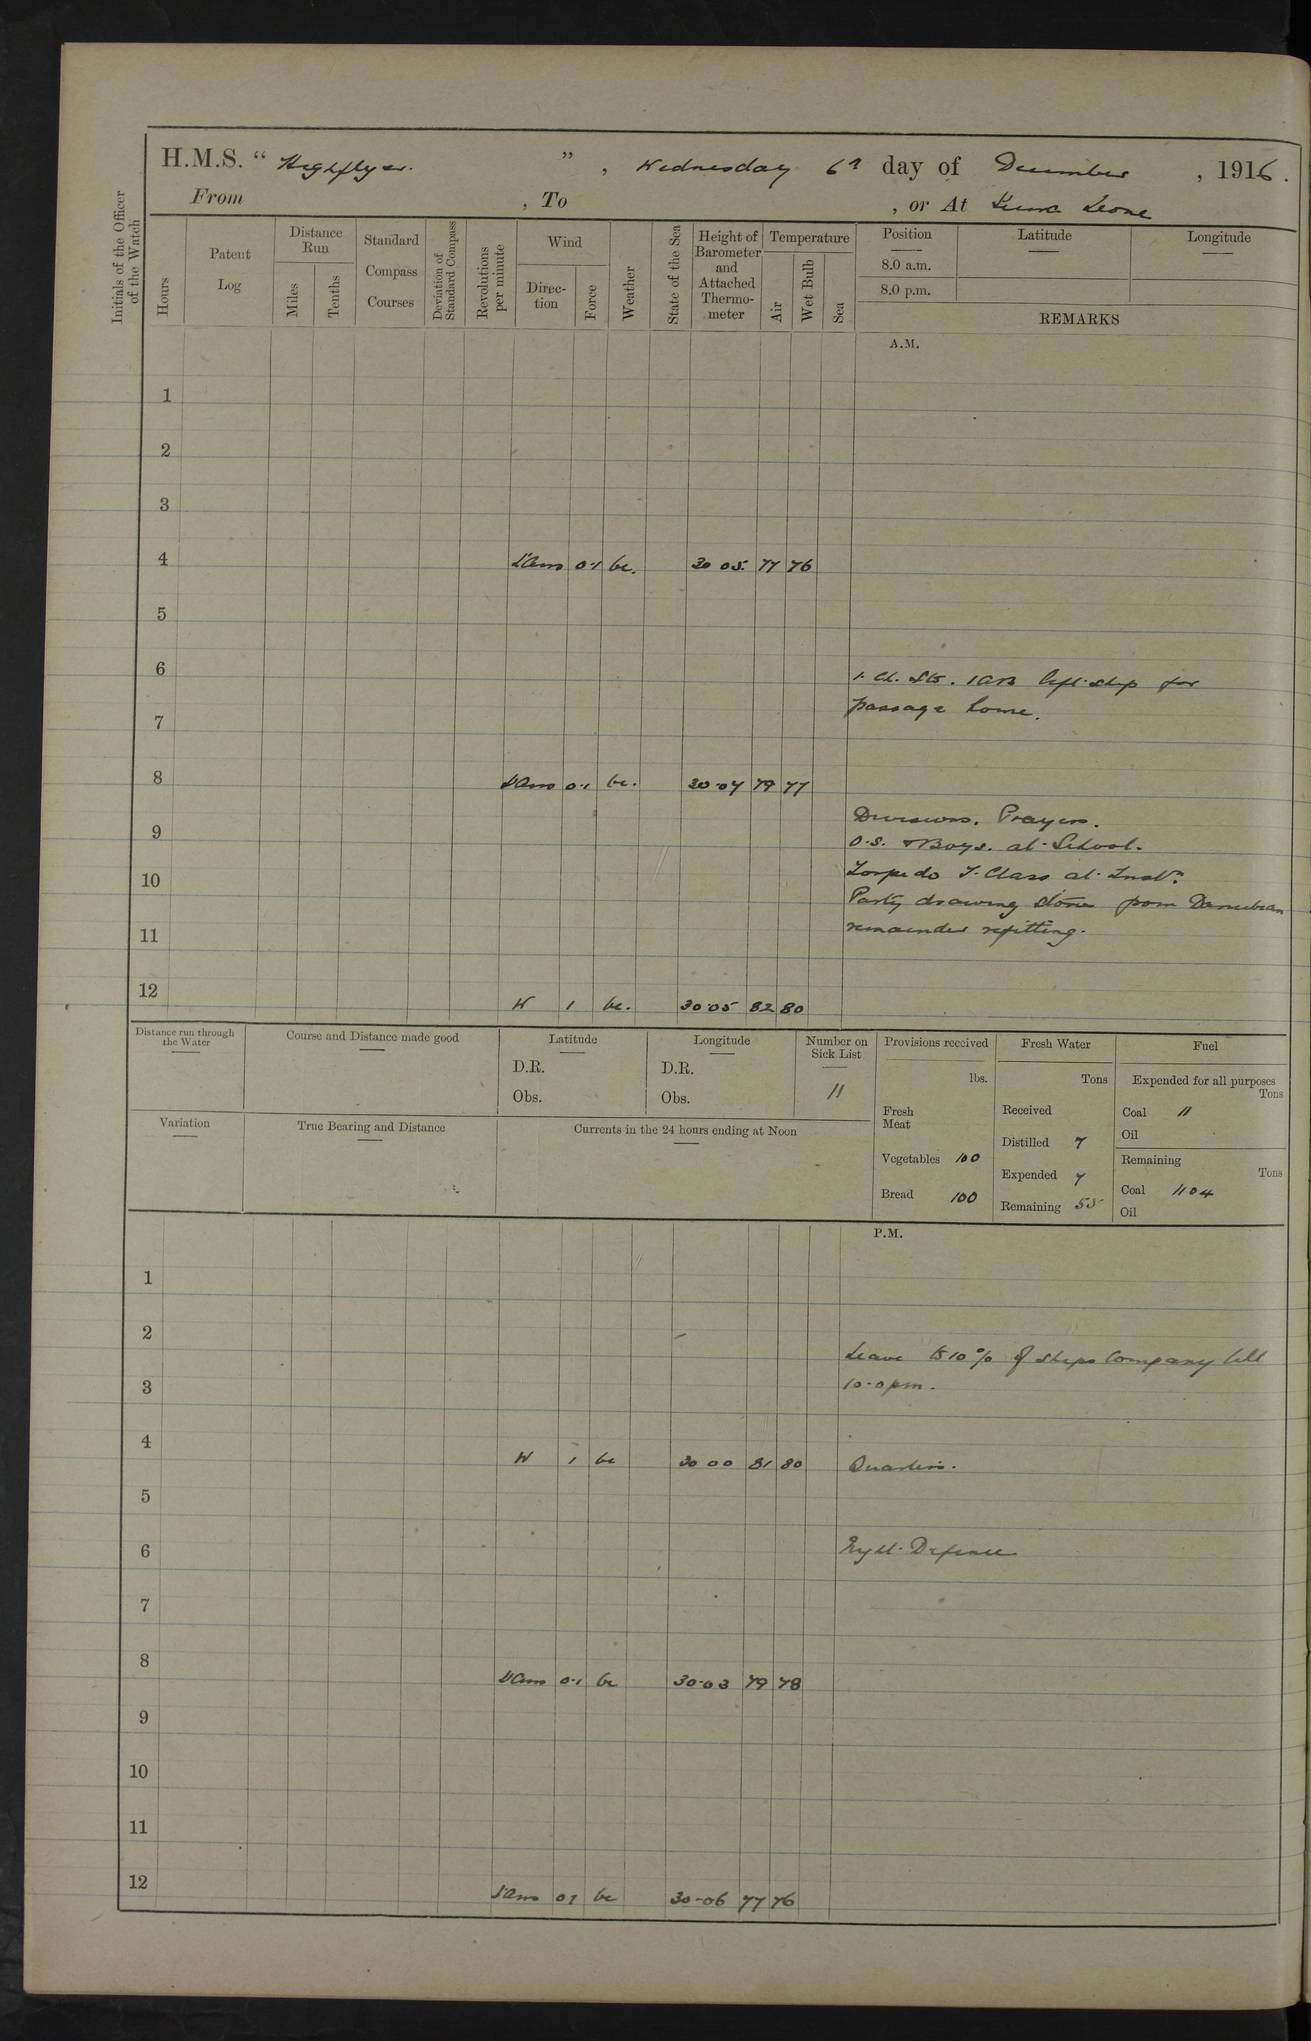 H.M.S. “ Highflyer. ”, Wednesday 6th day of December, 1916.
From , To , or At Sierra Leone
Initials of the Officer of the Watch
Hours
Patent Log
Distance Run
Miles
Tenths
Standard Compass Courses
Deviation of Standard Compass
Revolutions per minute
Wind
Direction
Force
Weather
State of the Sea
Height of Barometer and Attached Thermometer
Temperature
Air
Wet Bulb
Sea
Position
8.0 a.m.
8.0 p.m.
Latitude
Longitude
REMARKS
A.M.
1
2
3
4 Airs 0.1 bc. 30 05. 77 76
5
6
1. Ch. Sto. 1 AB left ship for
passage home.
7
8 Airs 0.1 bc. 30.07 79 77
Divisions. Prayers.
9
O.S. & Boys. at School.
10
Torpedo T. Class at Instn.
Party drawing stores from Danubian
11
remainder refitting.
12 W 1 bc. 30.05 82 80
Distance run through the Water
Course and Distance made good
Latitude
D.R.
Obs.
Longitude
D.R.
Obs.
Number on Sick List
11
Provisions received
lbs.
Fresh Meat
Vegetables 100
Bread 100
Fresh Water
Tons
Received
Distilled 7
Expended 7
Remaining 55
Fuel
Expended for all purposes
Tons
Coal 11
Oil
Remaining
Tons
Coal 1104
Oil
Variation
True Bearing and Distance
Currents in the 24 hours ending at Noon
P.M.
1
2
Leave to 10% of ships Company till
3
10.0 pm.
4 W 1 bc 30 00 81 80 Quarters.
5
6 Night Defence
7
8 Airs 0.1 bc 30.03 79 78
9
10
11
12 Airs 0 1 bc 30-06 77 76